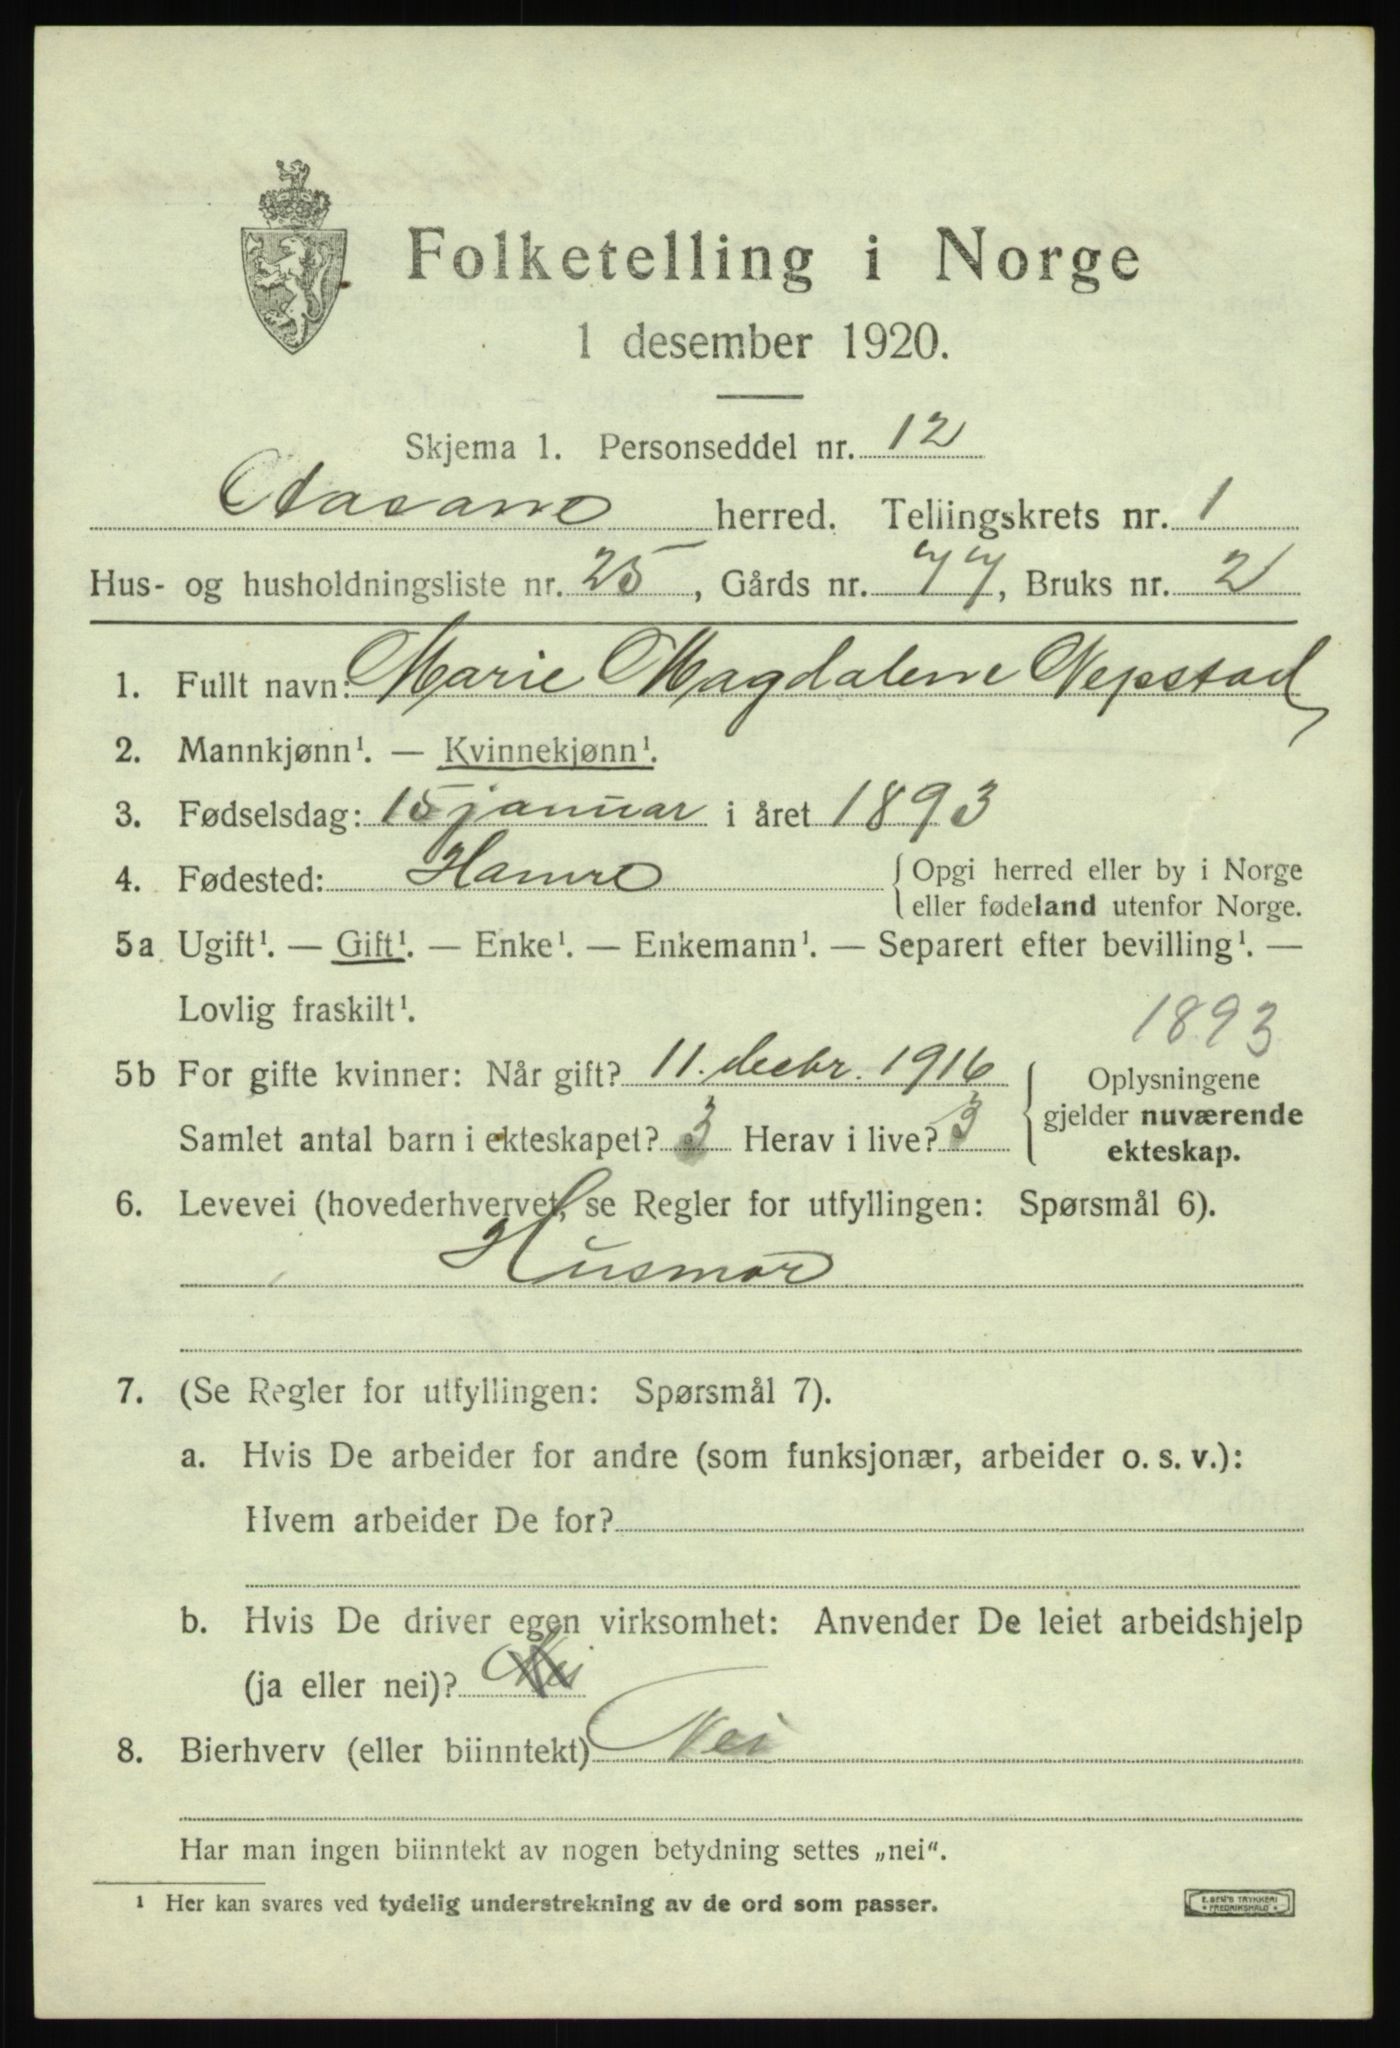 Folketelling i Norge
1 desember 1920.
Skjema 1. Personseddel nr. 12
Aasane herred. Tellingskrets nr. 1
Hus- og husholdningsliste nr. 25, Gårds nr. 77, Bruks nr. 2
1. Fullt navn: Marie Magdalene Nepstad
2. Mannkjønn¹. — Kvinnekjønn¹.
3. Fødselsdag: 15 januar i året 1893
4. Fødested: Hamre { Opgi herred eller by i Norge
eller fødeland utenfor Norge.
5a Ugift¹. — Gift¹. — Enke¹. — Enkemann¹. — Separert efter bevilling¹. —
Lovlig fraskilt¹.
1893
5b For gifte kvinner: Når gift? 11. decbr. 1916 { Oplysningene
gjelder nuværende
Samlet antal barn i ekteskapet? 3 Herav i live? 3
ekteskap.
6. Levevei (hovederhvervet, se Regler for utfyllingen: Spørsmål 6).
Husmor
7. (Se Regler for utfyllingen: Spørsmål 7).
a. Hvis De arbeider for andre (som funksjonær, arbeider o. s. v.):
Hvem arbeider De for?
b. Hvis De driver egen virksomhet: Anvender De leiet arbeidshjelp
(ja eller nei)? Nei
8. Bierhverv (eller biinntekt) Nei
Har man ingen biinntekt av nogen betydning settes „nei“.
¹ Her kan svares ved tydelig understrekning av de ord som passer.
E. SEM'S TRYKKERI
FREDRIKSHALD